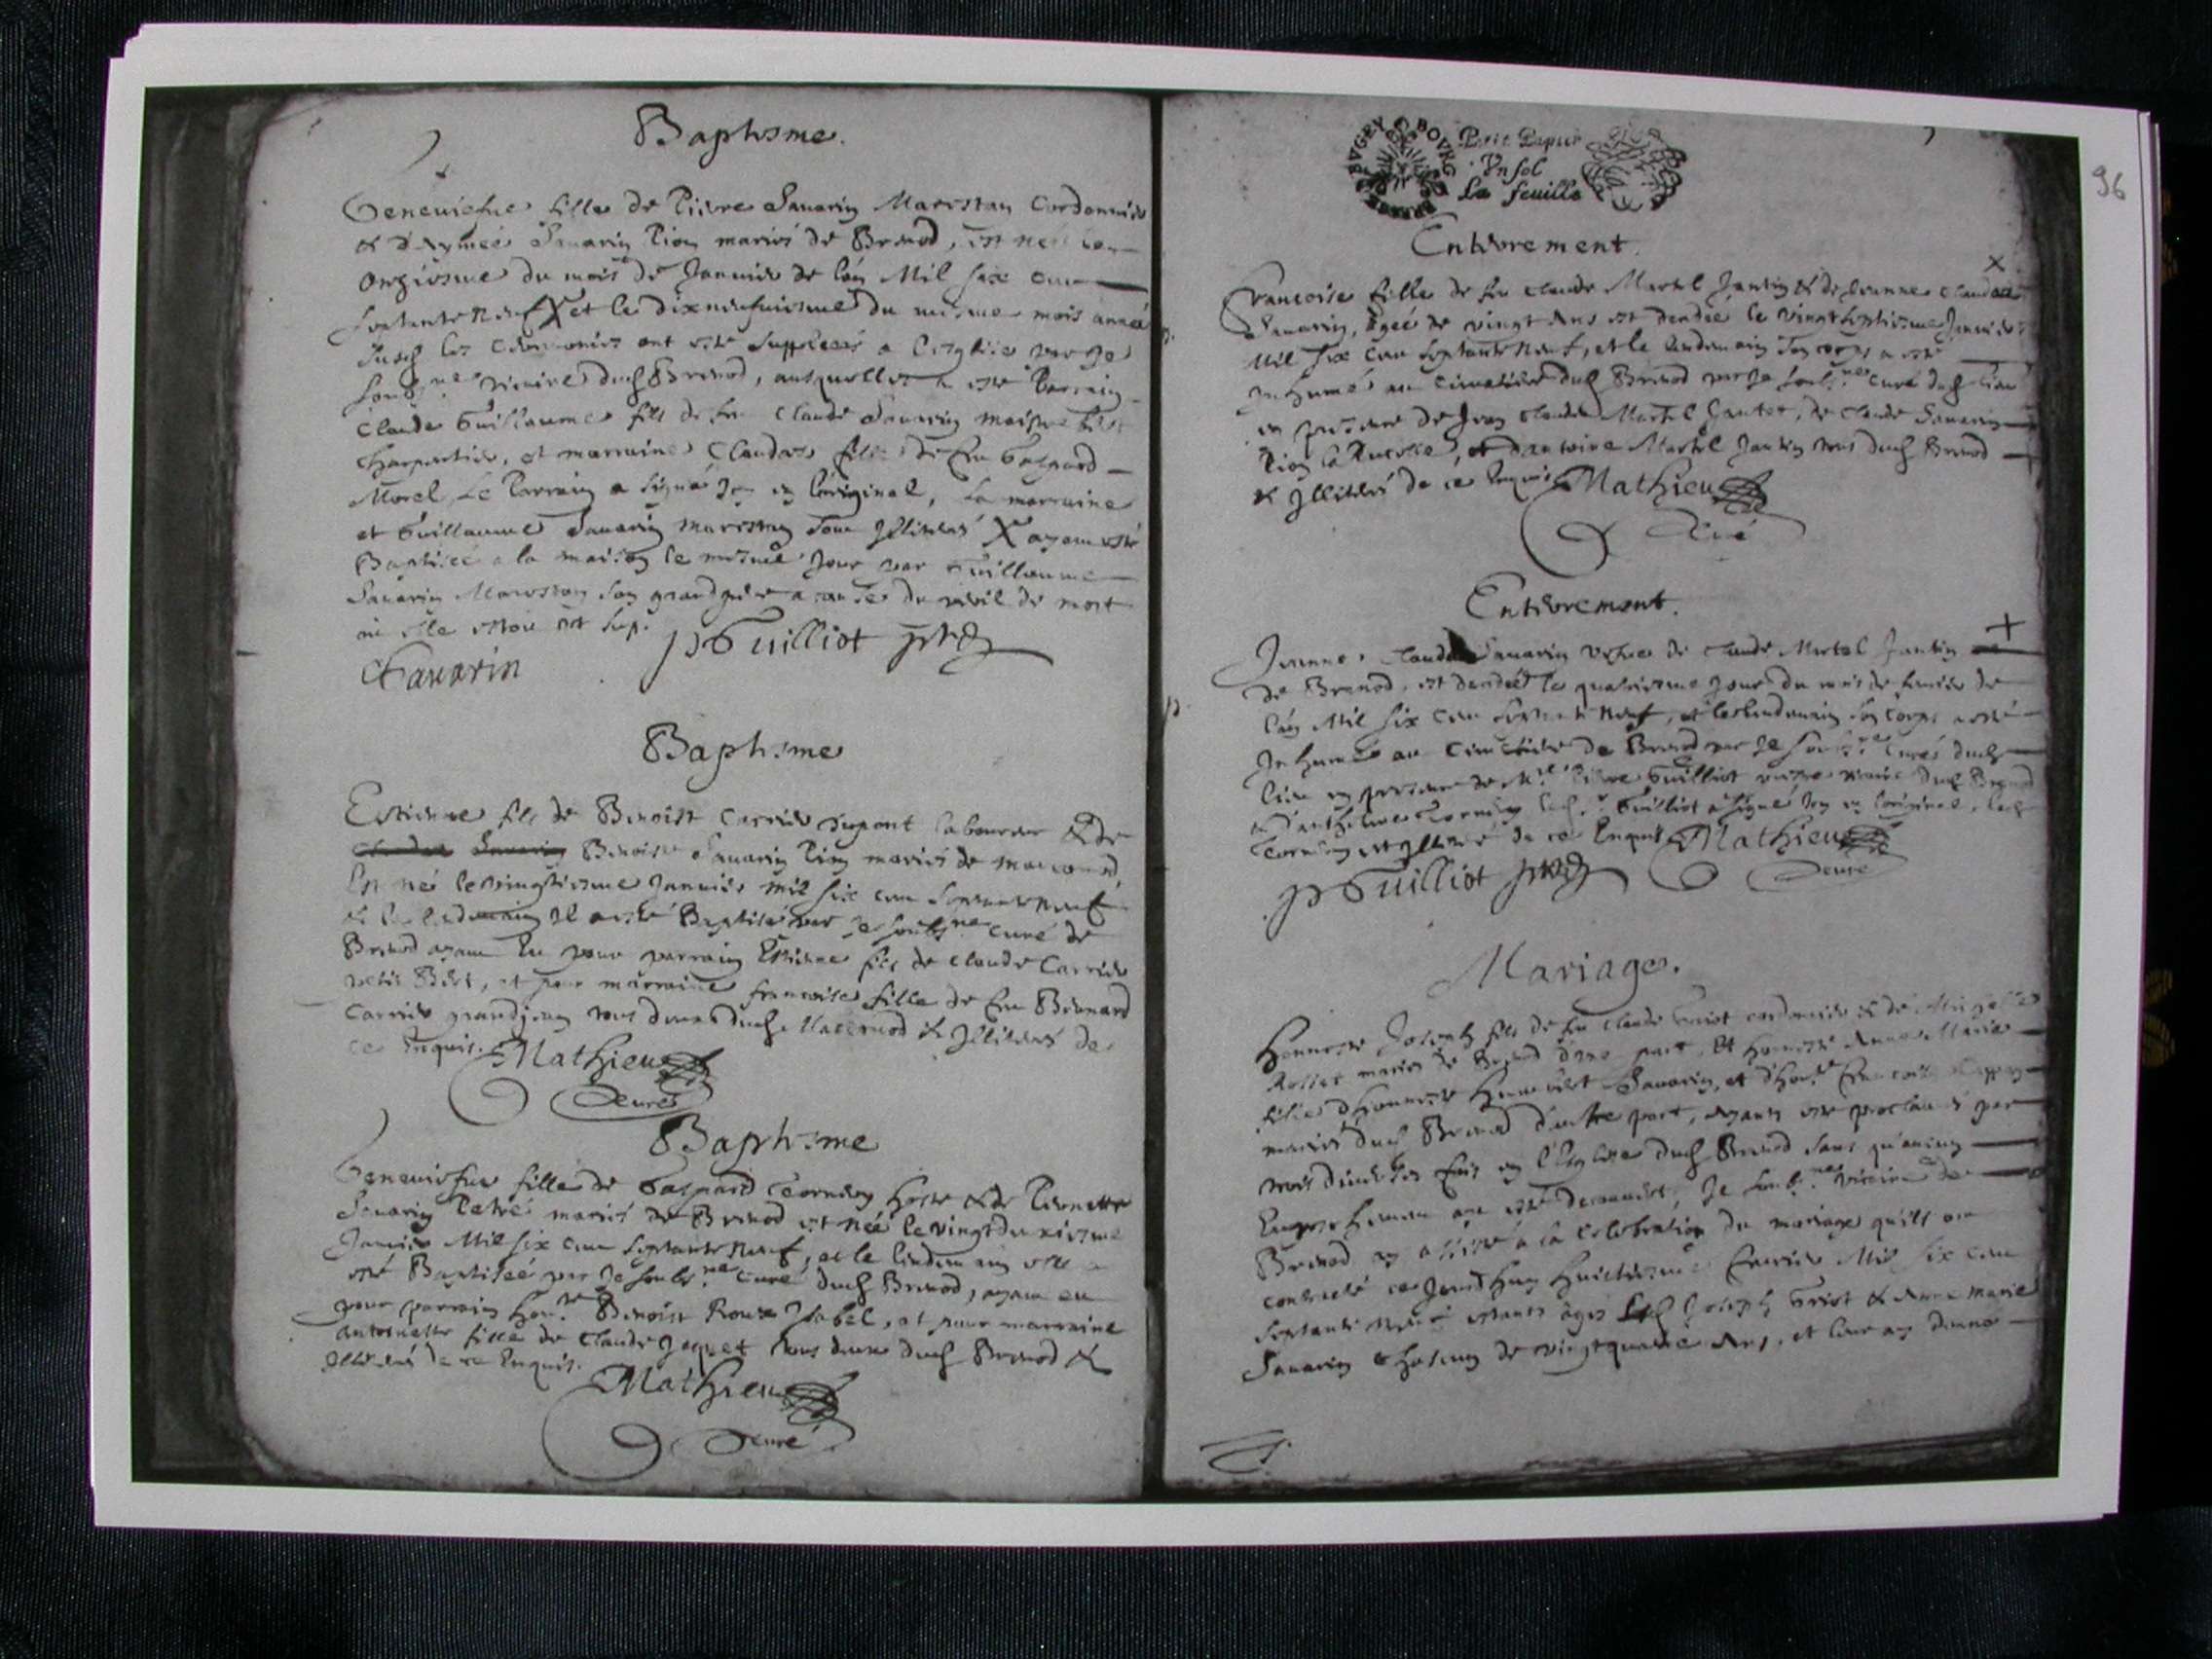 Baptisme.
Geneuiesue fille de Pierre Sauarin Marestan Cordonnier
& d'Aymée Sauarin Pion mariés de Brenod, est née
onziesme du mois de Januier de l'an Mil six cen
septante neuf X et le dixneufuiesme du mesme mois année
susd les ceremonies ont esté supplées a l'esglise par je
soub.né vicaire dud Brenod, ausquelles a esté Parrain
Claude Guillaume fils de feu Claude Sauarin maistre
charpentier, et marraine Claudaz fille de feu Gaspard
Morel, Le Parrain a signé en l'original, la marraine
et Guillaume Sauarin marestan sont Illiterés X ayant esté
Baptisée a la maison le mesme jour par Guillaume
Sauarin Marestan son grandpere a cause du peril de mort
où elle estoit
CSauarin P Guilliot
Baptisme
Estienne fils de Benoist Carrier dupont laboureur & de
Sauarin Benoiste Sauarin Pion mariés de Maconod,
Est né le vingtiesme Januier mil six cen septante neuf
& le lendemain Il a esté Baptisé par Je soubs.né curé de
Brenod ayant Eu pour parrain Estienne fils de Claude Carrier
petit Biet, et pour marraine francoise fille de feu Bernard
Carrier grandjean tous deux dud Maconod & Illiterés de
ce Enquis. Mathieu
Curé
Baptisme
Geneuiesue fille de Gaspard Teornier hoste & de Pernette
Sauarin Patré mariés de Brenod est née le vingtdeuxiesme
Januier Mil six cen septante neuf, et le lendemain elle a
esté Baptisée par Je soubs.né Curé dud Brenod, ayant eu
pour parrain hon.te Benoist Roux Isabel, et pour marraine
Antoinette fille de Claude Joquet tous deux dud Brenod &
Illiterés de ce Enquis.
Mathieu
Curé
96
BVGEY BOVRG
Petit Papier
Vn sol
La feuille
Enterrement.
Francoise fille de feu Claude Martel Jantin & de Jeanne Claudaz
Sauarin, agée de vingt Ans est decedée le vingtseptiesme Januier
Mil six cen septante neuf, et le lendemain son corps a esté
Inhumé au Cimetiere dud Brenod par Je soub.né Curé dud lieu
en presence de Jean Claude Martel Gautet, de Claude Sauarin
Pion, et d'Antoine Martel Jantin tous dud Brenod
& Illiterés de ce Enquis Mathieu
Curé
Enterrement.
Jeanne Claudaz Sauarin vefue de Claude Martel Jantin
de Brenod, est decedée le quatriesme jour du mois de feurier de
l'an Mil six cen septante neuf, et le lendemain son corps a esté
Inhumé au Cimetiere de Brenod par Je soub.né Curé dud
lieu en presence de M.re Pierre Guilliot prestre vicaire dud Brenod
& d'Anthelme Teornier led. Guilliot a signé en l'original, led
Teornier est Illiteré de ce Enquis Mathieu
P Guilliot Curé
Mariage.
Honneste Joseph fils de feu Claude Griot cordonnier & de
Rollet mariés de Brenod d'une part, Et honneste Anne Marie
fille d'honneste Sauarin, et d'hon.te Francoise
mariés dud Brenod d'autre part, ayants esté proclamés par
trois diuerses fois en l'Esglise dud Brenod sans qu'aucun
Empeschement aye esté descouuert, Je soub.né vicaire de
Brenod ay assisté à la celebration du mariage quils ont
contracté ce Jourdhuy huictiesme feurier Mil six cen
septante neuf estants agés Led Joseph Griot & Anne Marie
Sauarin chascun de vingtquatre Ans, et leur ay donné